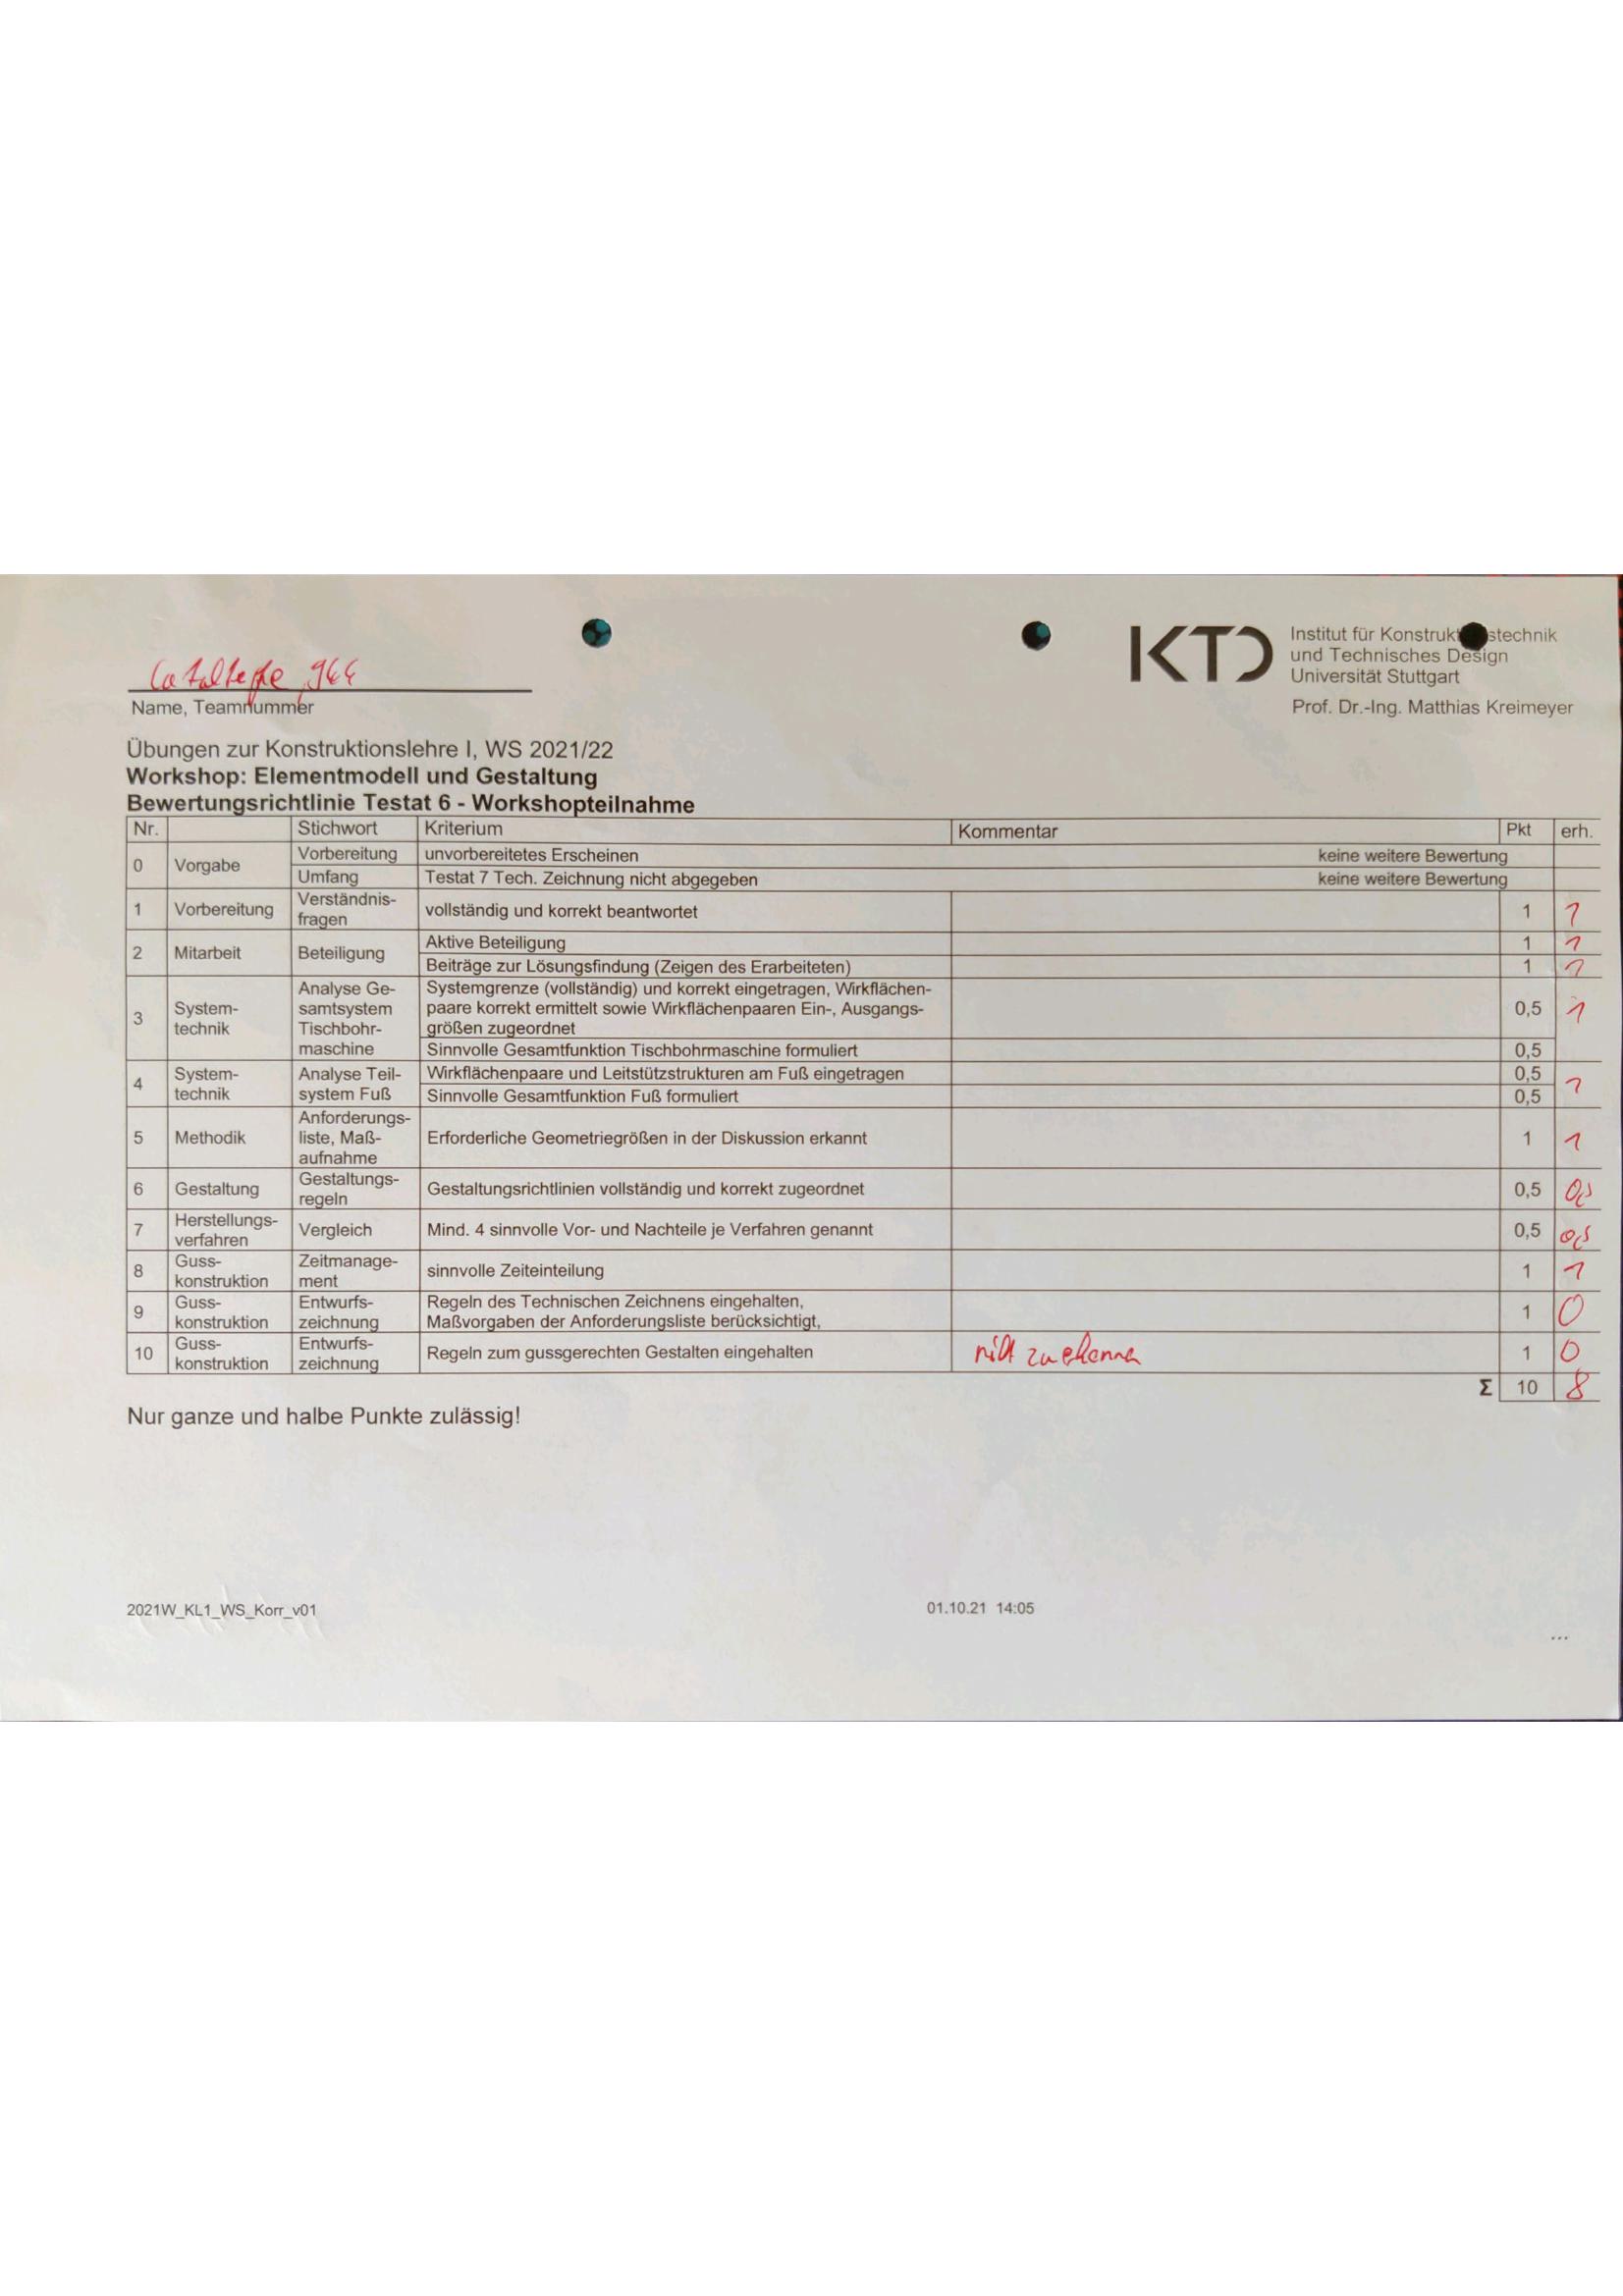 KTD
Institut für Konstruktionstechnik
und Technisches Design
Universität Stuttgart
Prof. Dr.-Ing. Matthias Kreimeyer
Name, Teamnummer
Übungen zur Konstruktionslehre I, WS 2021/22
Workshop: Elementmodell und Gestaltung
Bewertungsrichtlinie Testat 6 - Workshopteilnahme
Nr. Stichwort Kriterium Kommentar Pkt erh.
0 Vorgabe Vorbereitung unvorbereitetes Erscheinen keine weitere Bewertung
Umfang Testat 7 Tech. Zeichnung nicht abgegeben keine weitere Bewertung
1 Vorbereitung Verständnis-
fragen vollständig und korrekt beantwortet 1 1
2 Mitarbeit Beteiligung Aktive Beteiligung 1 1
Beiträge zur Lösungsfindung (Zeigen des Erarbeiteten) 1 1
3 System-
technik Analyse Ge-
samtsystem
Tischbohr-
maschine Systemgrenze (vollständig) und korrekt eingetragen, Wirkflächen-
paare korrekt ermittelt sowie Wirkflächenpaaren Ein-, Ausgangs-
größen zugeordnet 0,5 1
Sinnvolle Gesamtfunktion Tischbohrmaschine formuliert 0,5
4 System-
technik Analyse Teil-
system Fuß Wirkflächenpaare und Leitstützstrukturen am Fuß eingetragen 0,5 1
Sinnvolle Gesamtfunktion Fuß formuliert 0,5
5 Methodik Anforderungs-
liste, Maß-
aufnahme Erforderliche Geometriegrößen in der Diskussion erkannt 1 1
6 Gestaltung Gestaltungs-
regeln Gestaltungsrichtlinien vollständig und korrekt zugeordnet 0,5 0,5
7 Herstellungs-
verfahren Vergleich Mind. 4 sinnvolle Vor- und Nachteile je Verfahren genannt 0,5 0,5
8 Guss-
konstruktion Zeitmanage-
ment sinnvolle Zeiteinteilung 1 1
9 Guss-
konstruktion Entwurfs-
zeichnung Regeln des Technischen Zeichnens eingehalten,
Maßvorgaben der Anforderungsliste berücksichtigt, 1 0
10 Guss-
konstruktion Entwurfs-
zeichnung Regeln zum gussgerechten Gestalten eingehalten nicht zu erkennen 1 0
Σ 10 8
Nur ganze und halbe Punkte zulässig!
2021W_KL1_WS_Korr_v01
01.10.21 14:05
...